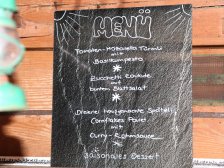 MENÜ
Tomaten-Mozzarella Türmli
mit
Basilikumpesto
Zucchetti Roulade
mit
buntem Blattsalat
Dreierlei hausgemachte Spätzli
Cornflakes Poulet
mit
Curry-Rahmsauce
Saisonales Dessert